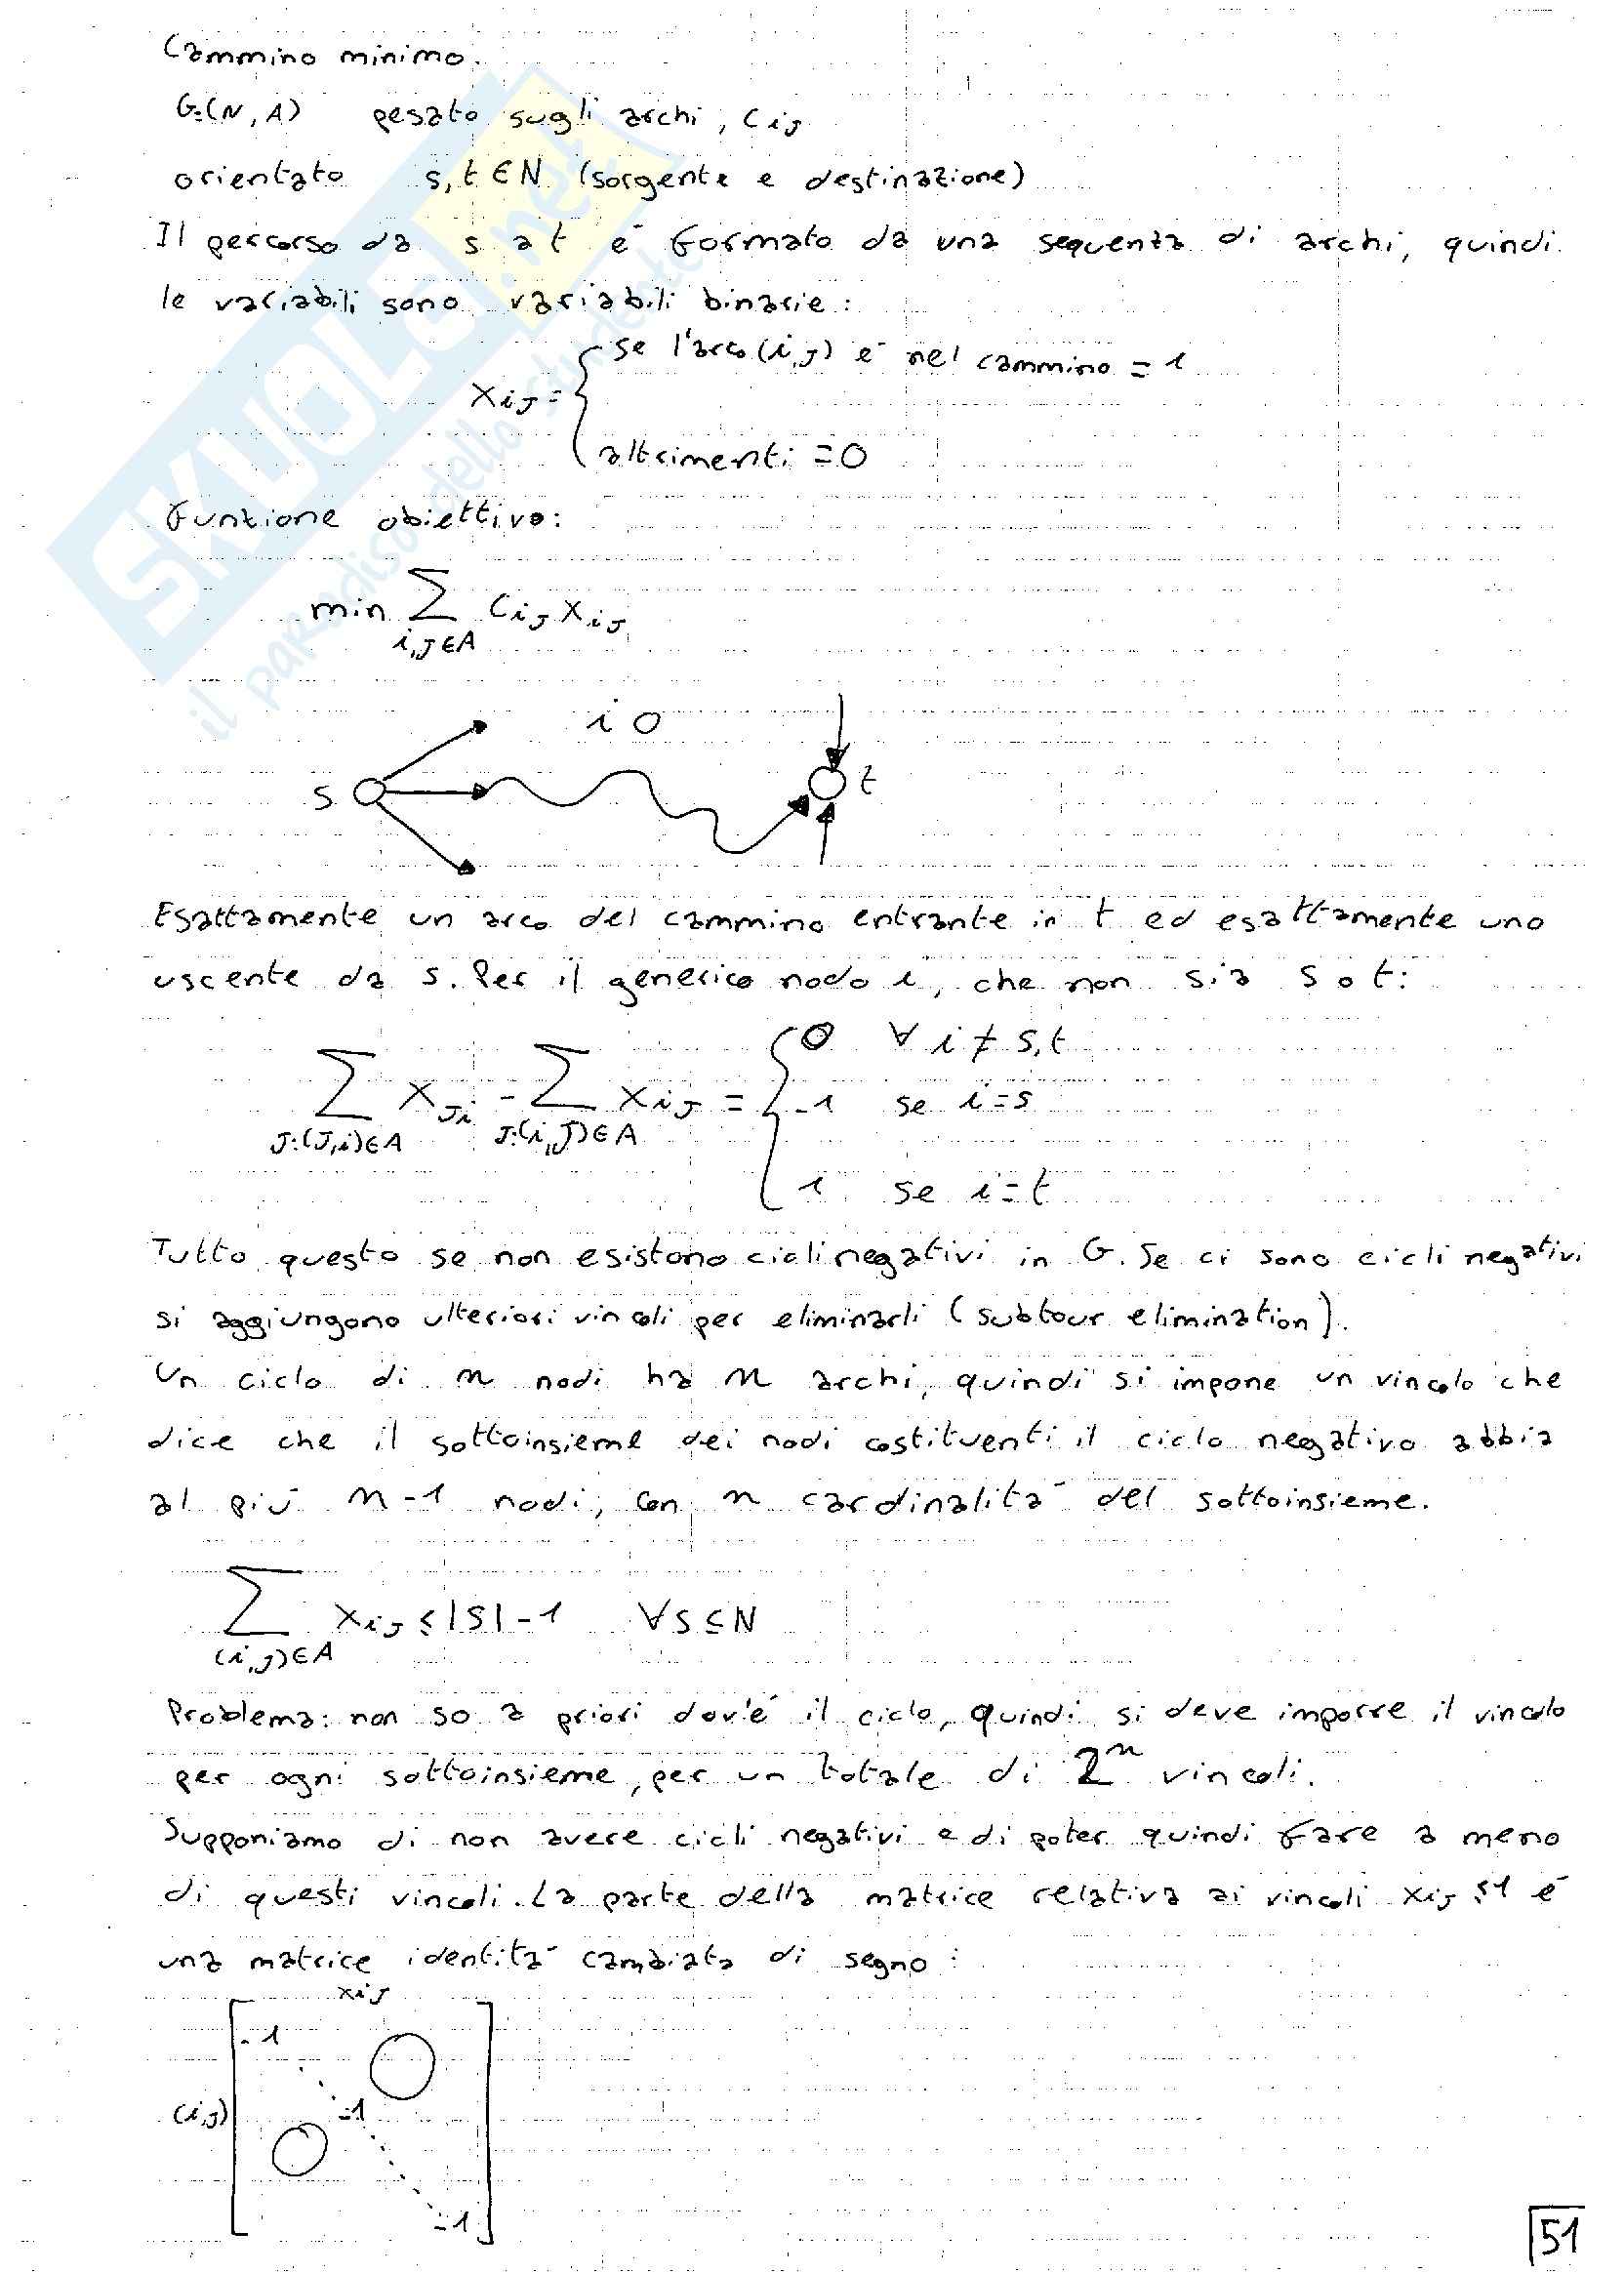 Cammino minimo.
G=(N, A) pesato sugli archi, cij
orientato s, t ∈ N (sorgente e destinazione)
Il percorso da s a t e' formato da una sequenza di archi, quindi
le variabili sono variabili binarie:
xij = { se l'arco (i,j) e' nel cammino = 1
altrimenti = 0
Funzione obiettivo:
min ∑ cij xij
i,j ∈ A
i
s t
Esattamente un arco del cammino entrante in t ed esattamente uno
uscente da s. Per il generico nodo i, che non sia s o t:
∑ xji - ∑ xij = { 0 ∀ i ≠ s,t
-1 se i=s
1 se i=t
j:(j,i)∈A j:(i,j)∈A
Tutto questo se non esistono cicli negativi in G. Se ci sono cicli negativi
si aggiungono ulteriori vincoli per eliminarli (subtour elimination).
Un ciclo di n nodi ha n archi, quindi si impone un vincolo che
dice che il sottoinsieme dei nodi costituenti il ciclo negativo abbia
al piu' n-1 nodi, con n cardinalita' del sottoinsieme.
∑ xij ≤ |S| - 1 ∀ S ⊆ N
(i,j)∈A
Problema: non so a priori dov'e' il ciclo, quindi si deve imporre il vincolo
per ogni sottoinsieme, per un totale di 2^n vincoli.
Supponiamo di non avere cicli negativi e di poter quindi fare a meno
di questi vincoli. La parte della matrice relativa ai vincoli xij ≤1 e'
una matrice identita' cambiata di segno:
xij
-1 0
(i,j) -1
0
-1
51
SKUOLA.net
il paradiso dello studente